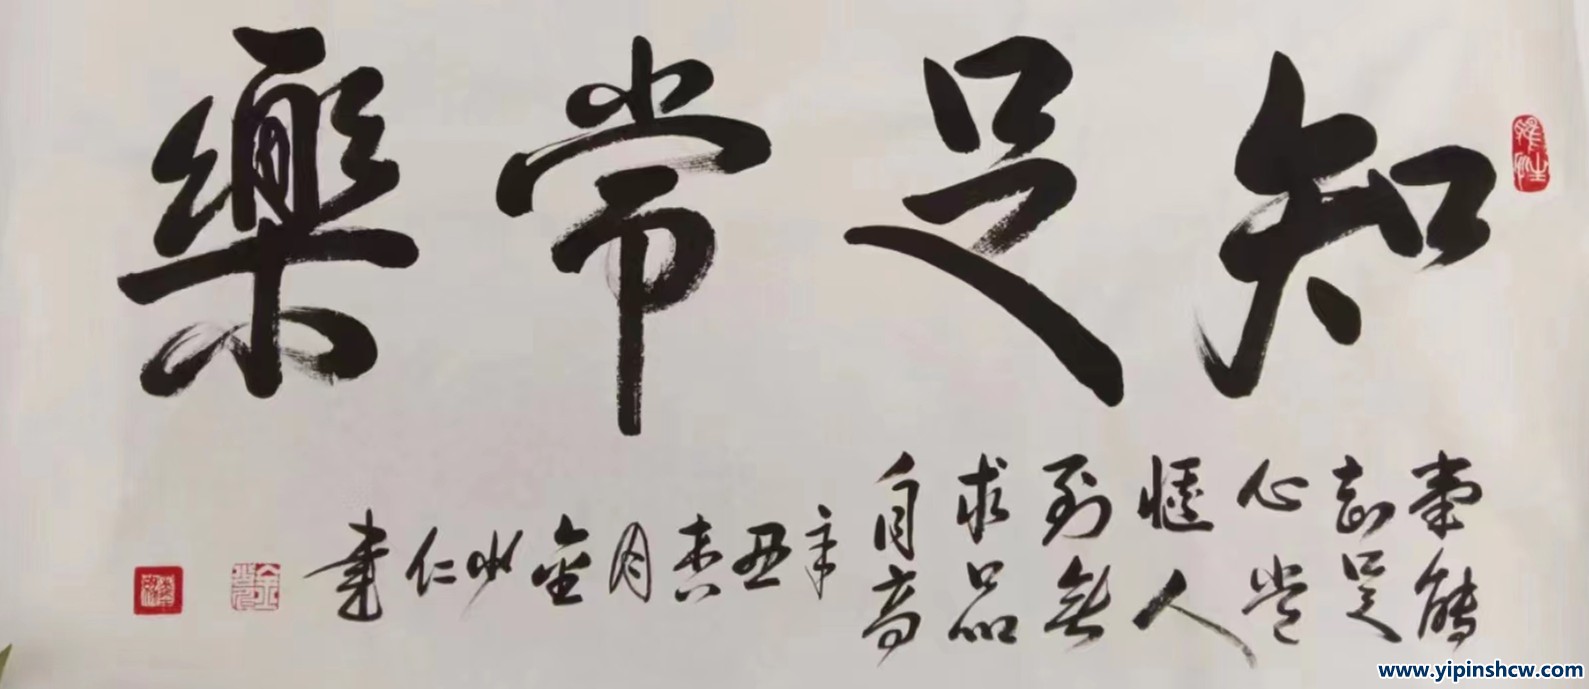 知足常樂
事能
知足
心常
愜人
到無
求品
自高
辛丑杏月金仁書
www.yipinshcw.com